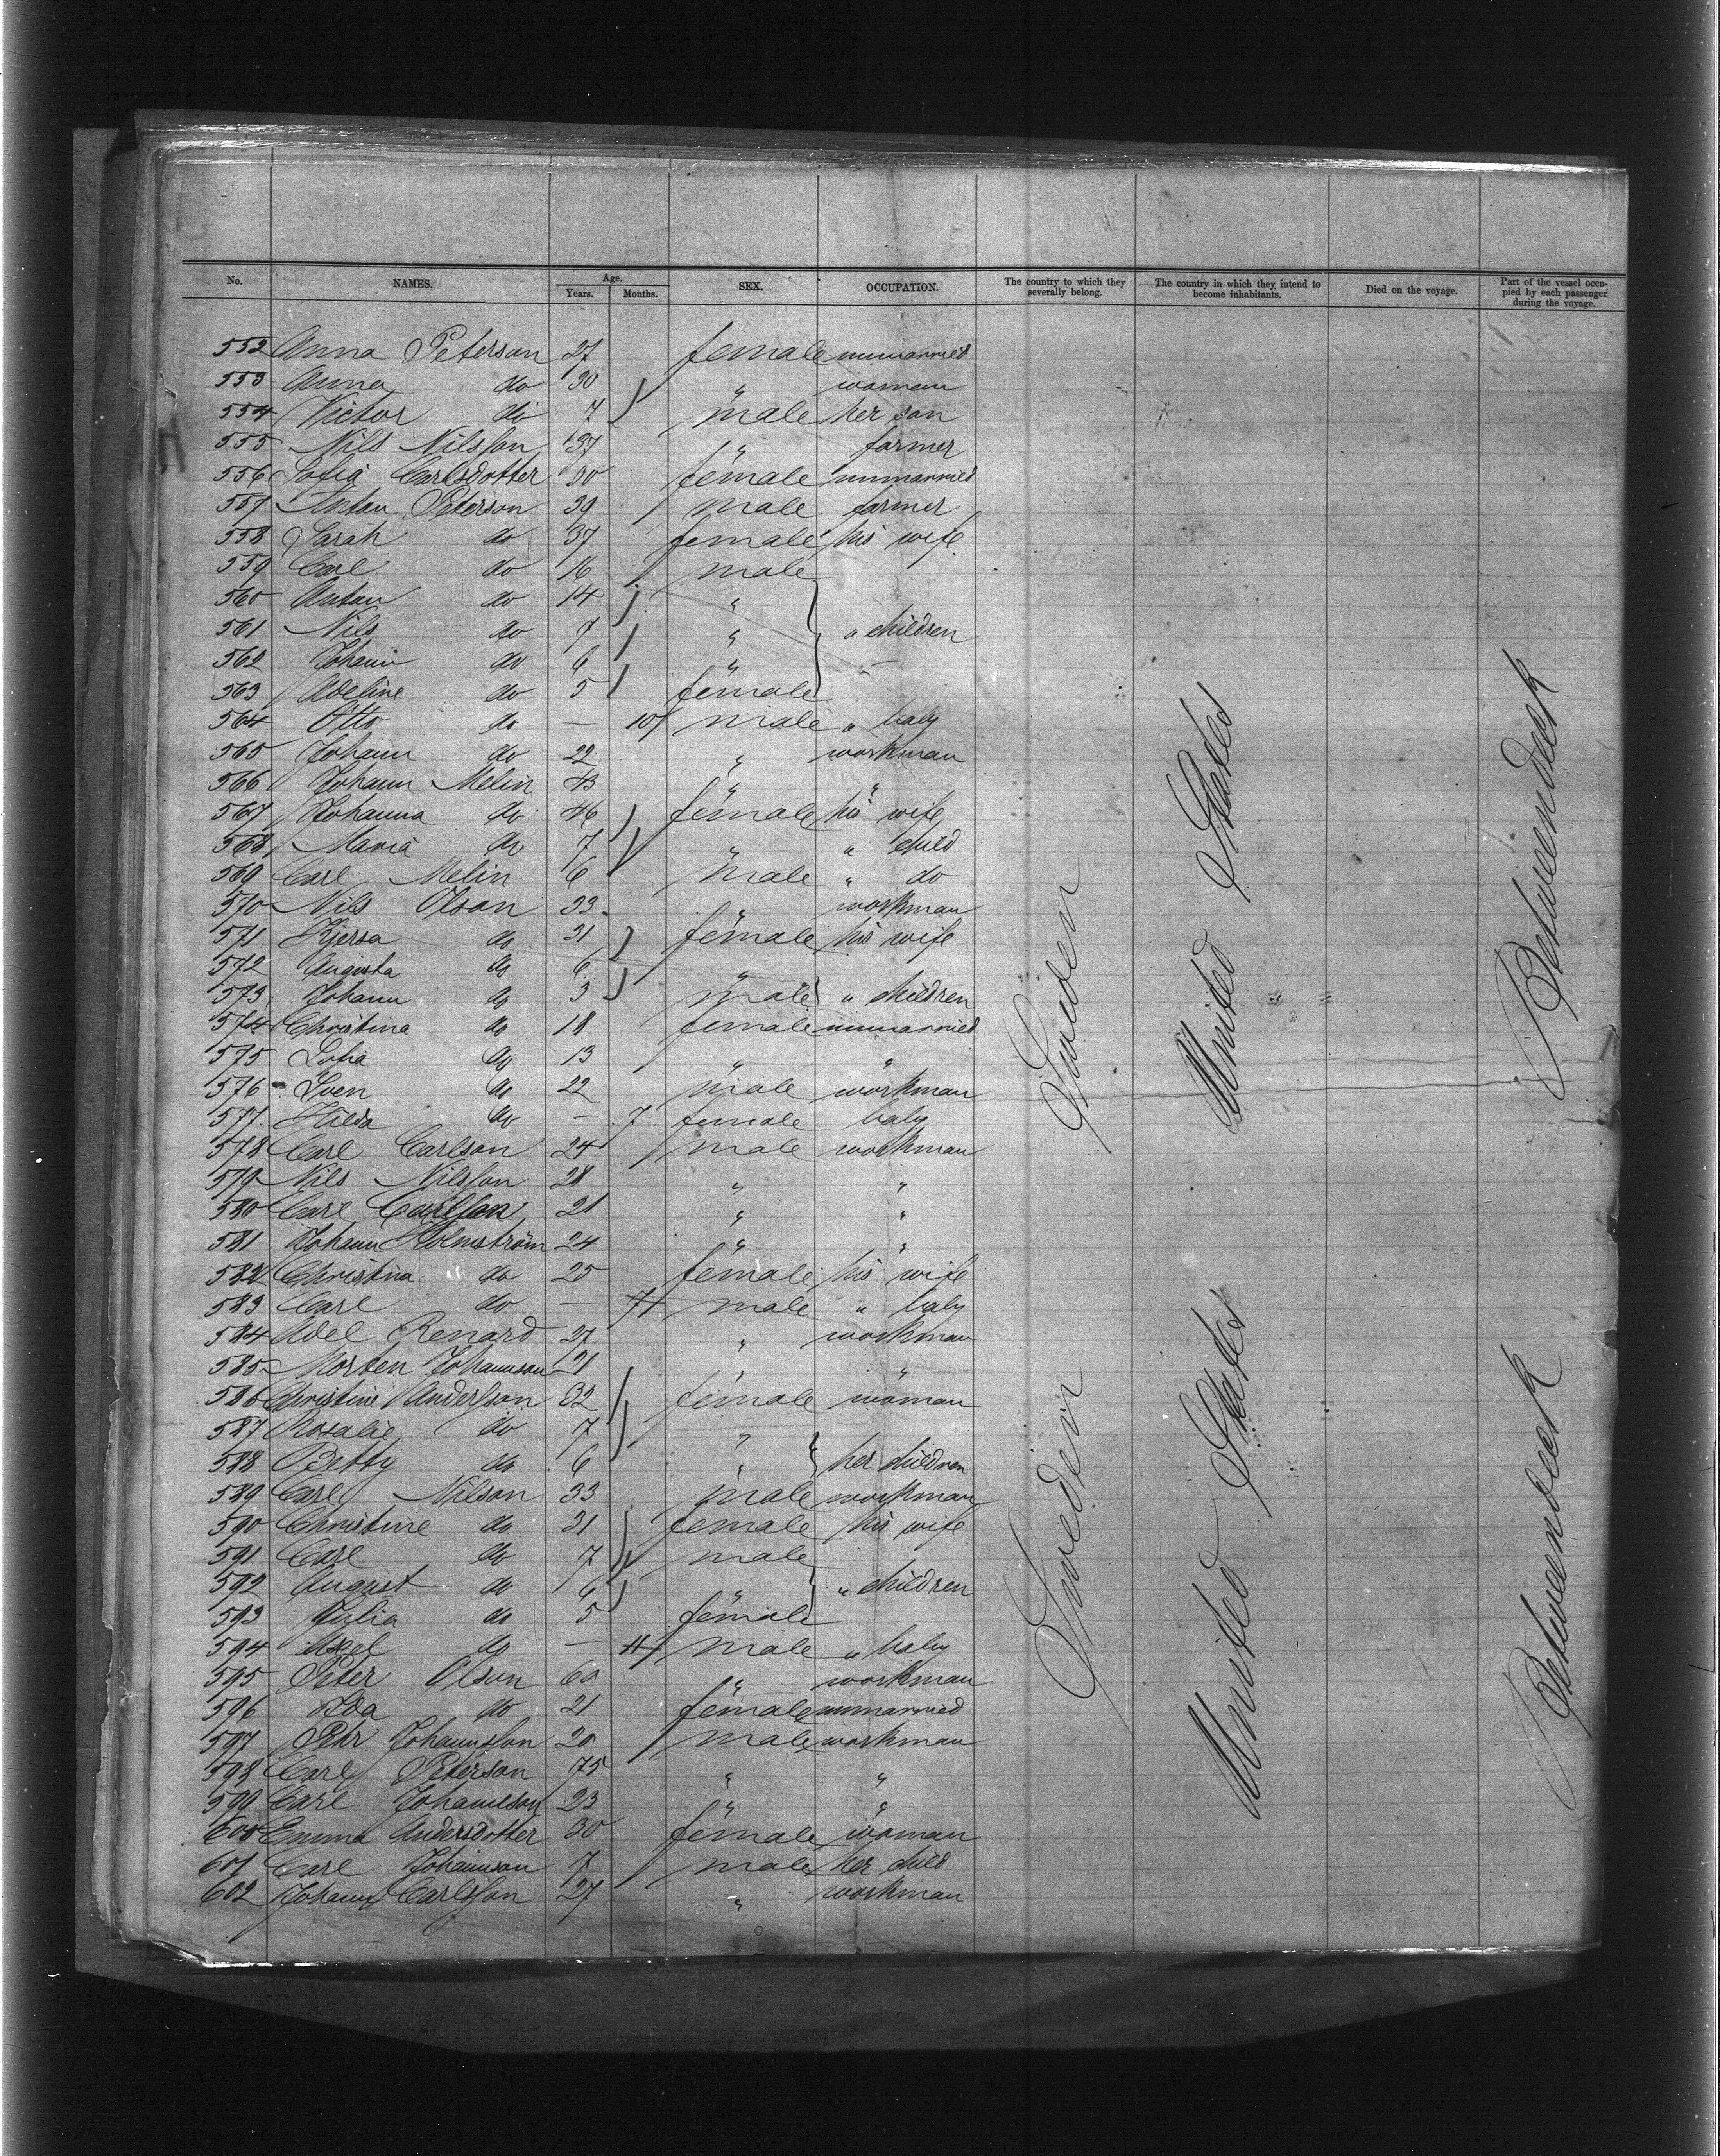 No. NAMES. Age. Years. Months. SEX. OCCUPATION. The country to which they severally belong. The country in which they intend to become inhabitants. Died on the voyage. Part of the vessel occupied by each passenger during the voyage.
552 Anna Peterson 27 female unmarried
553 Anna do 30 " woman
554 Victor do 7 male her son
555 Nils Nilsson 37 " farmer
556 Sofia Carlsdotter 30 female unmarried
557 Anton Peterson 39 male farmer
558 Sarah do 37 female his wife
559 Carl do 16 male
560 Anton do 14 "
561 Nils do 7 " " children
562 Johann do 6 "
563 Adeline do 5 female
564 Otto do — 10 male " baby
565 Johann do 22 " workman
566 Johann Melin 43 " "
567 Johanna do 46 female his wife
568 Maria do 7 " " child
569 Carl Melin 6 male " do
570 Nils Olson 33 " workman
571 Kjersa do 31 female his wife
572 Augusta do 6 "
573 Johann do 3 male " children
574 Christina do 18 female unmarried
575 Sofia do 13 " "
576 Sven do 22 male workman
577 Hilda do — 7 female baby
578 Carl Carlson 24 male workman
579 Nils Nilsson 28 " "
580 Carl Carlsson 21 " "
581 Johann Holmström 24 " "
582 Christina do 25 female his wife
583 Carl do — male " baby
584 Adel Renard 27 " workman
585 Morten Johannson 21 " "
586 Christine Andersson 32 female woman
587 Rosalie do 7 "
588 Betty do 6 " her children
589 Carl Nilson 33 male workman
590 Christine do 31 female his wife
591 Carl do 7 male
592 August do 6 " " children
593 Julia do 5 female
594 Axel do — 11 male " baby
595 Peter Olson 60 " workman
596 Ida do 21 female unmarried
597 Pehr Johannsson 20 male workman
598 Carl Peterson 75 " "
599 Carl Johannson 23 " "
600 Emma Andersdotter 30 female woman
601 Carl Johannson 7 male her child
602 Johann Carlsson 27 " workman
Sweden
United States
Betweendeck
Sweden
United States
Betweendeck